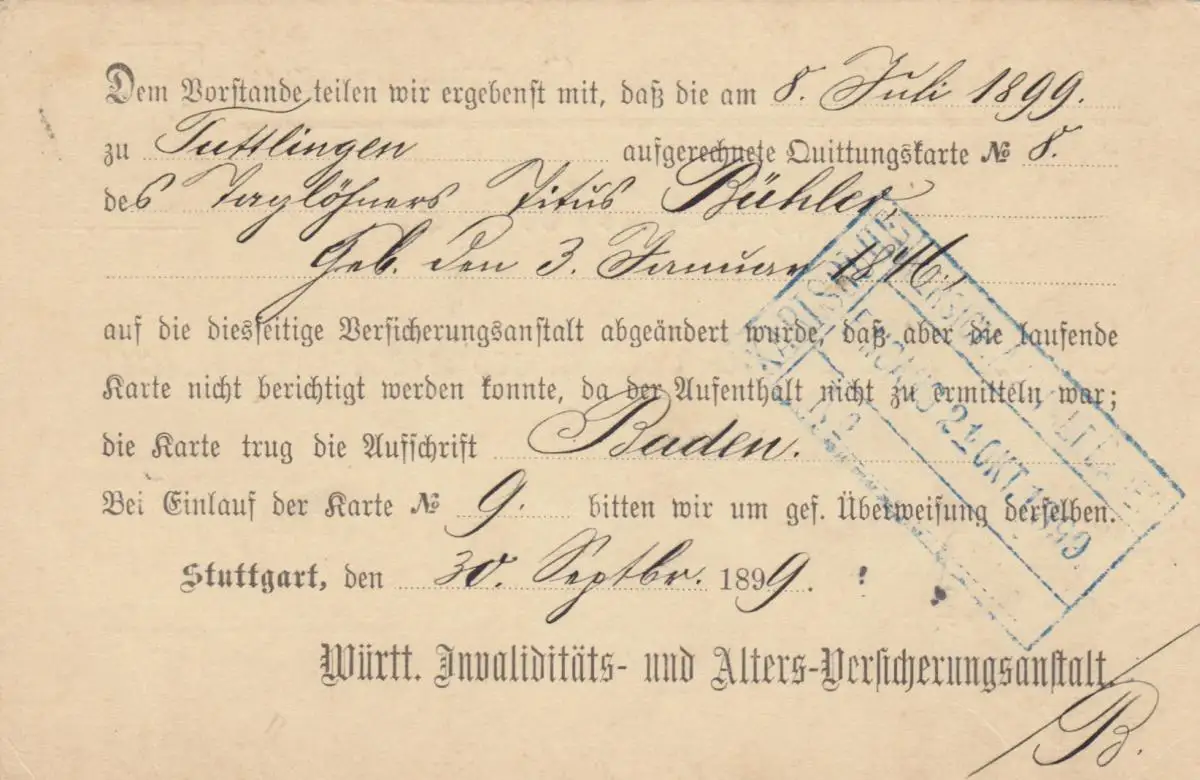 Dem Vorstande teilen wir ergebenst mit, daß die am 8. Juli 1899.
zu Tuttlingen aufgerechnete Quittungskarte № 8.
des Taglöhners Titus Bühler,
Geb. den 3. Januar 1846,
auf die diesseitige Versicherungsanstalt abgeändert wurde, daß aber die laufende
Karte nicht berichtigt werden konnte, da der Aufenthalt nicht zu ermitteln war;
die Karte trug die Aufschrift Baden.
Bei Einlauf der Karte № 9. bitten wir um gef. Überweisung derselben.
Stuttgart, den 30. Septbr. 1899.
Württ. Invaliditäts- und Alters-Versicherungsanstalt.
B.
21. OKT. 1899.